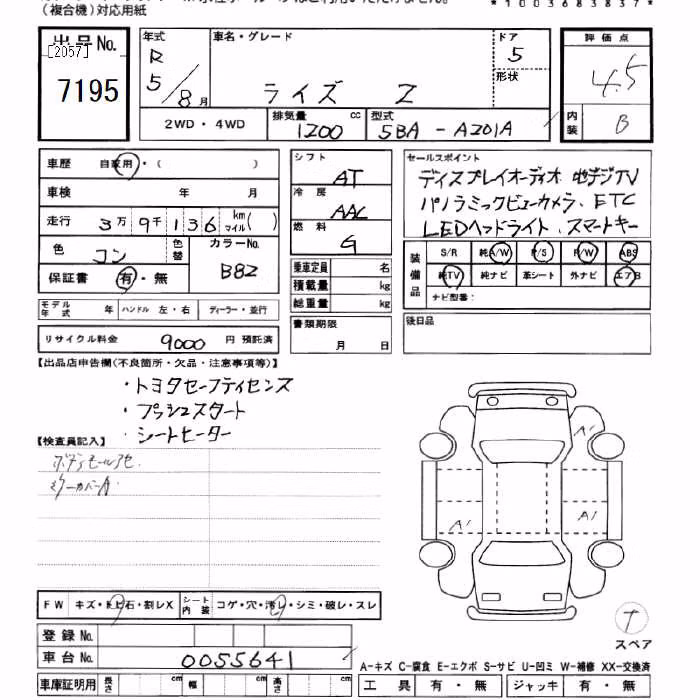 (複合機)対応用紙
*1003683837*
出品No.
[2057]
7195
年式 R5/8月
車名・グレード
ライズ Z
ドア 5
形状
評価点
4.5
内装 B
2WD・4WD
排気量 1200 cc
型式 5BA - A201A
車歴 自家用・( )
車検 年 月
走行 3万9千136 km マイル( )
色 コン 色替
カラーNo. B82
保証書 有・無
モデル年式 年 ハンドル 左・右 ディーラー・並行
リサイクル料金 9000 円 預託済
シフト AT
冷房 AAC
燃料 G
乗車定員 名
積載量 kg
総重量 kg
書類期限
月 日
セールスポイント
ディスプレイオーディオ 地デジTV
パノラミックビューカメラ、ETC
LEDヘッドライト、スマートキー
装備品
S/R 純A/W P/S P/W ABS
純TV 純ナビ 革シート 外ナビ エアB
ナビ型番:
後日品
【出品店申告欄(不良箇所・欠品・注意事項等)】
・トヨタセーフティセンス
・プッシュスタート
・シートヒーター
【検査員記入】
A1
A1
A1
FW キズ・トビ石・割レX
シート内装 コゲ・穴・汚レ・シミ・破レ・スレ
登録No.
車台No. 0055641
車庫証明用 長さ cm 幅 cm 高さ cm
T
スペア
A-キズ C-腐食 E-エクボ S-サビ U-凹ミ W-補修 XX-交換済
工具 有・無 ジャッキ 有・無